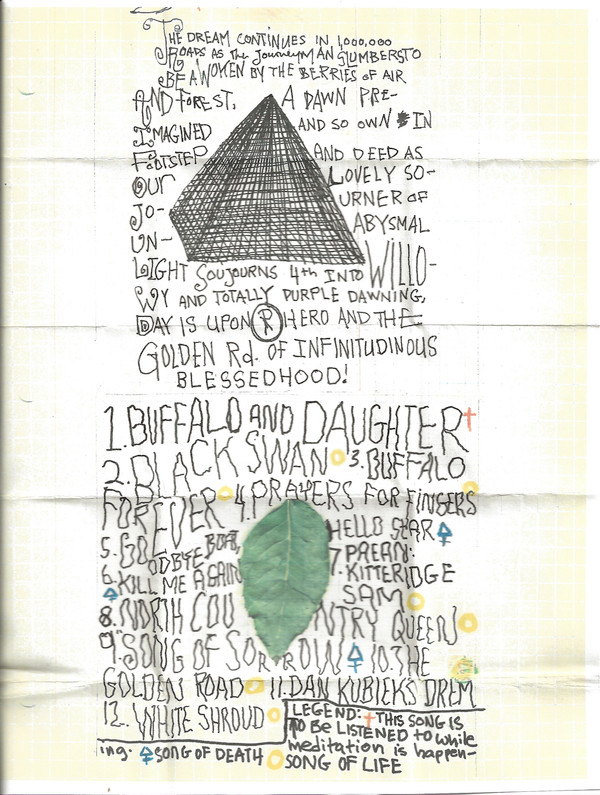 THE DREAM CONTINUES IN 1,000,000
ROADS AS THE JOURNEYMAN SLUMBERS TO
BE AWOKEN BY THE BERRIES OF AIR
AND FOREST, A DAWN PRE-
IMAGINED AND SO OWN IN
FOOTSTEP AND DEED AS
OUR LOVELY SO-
JO- URNER OF
UN- ABYSMAL
LIGHT SOUJOURNS 4th INTO WILLO-
WY AND TOTALLY PURPLE DAWNING,
DAY IS UPON R HERO AND THE
GOLDEN Rd. OF INFINITUDINOUS
BLESSEDHOOD!
1. BUFFALO AND DAUGHTER†
2. BLACK SWAN 3. BUFFALO
FOREVER 4. PRAYERS FOR FINGERS
5. GOODBYE BOAR, HELLO STAR
6. KILL ME AGAIN 7. PREAN:
KITTERIDGE
SAM
8. NORTH COUNTRY QUEEN
9. SONG OF SORROW 10. THE
GOLDEN ROAD 11. DAN KUBIEKS DREM
12. WHITE SHROUD
LEGEND: † THIS SONG IS
TO BE LISTENED TO while
meditation is happen-
ing. SONG OF DEATH SONG OF LIFE